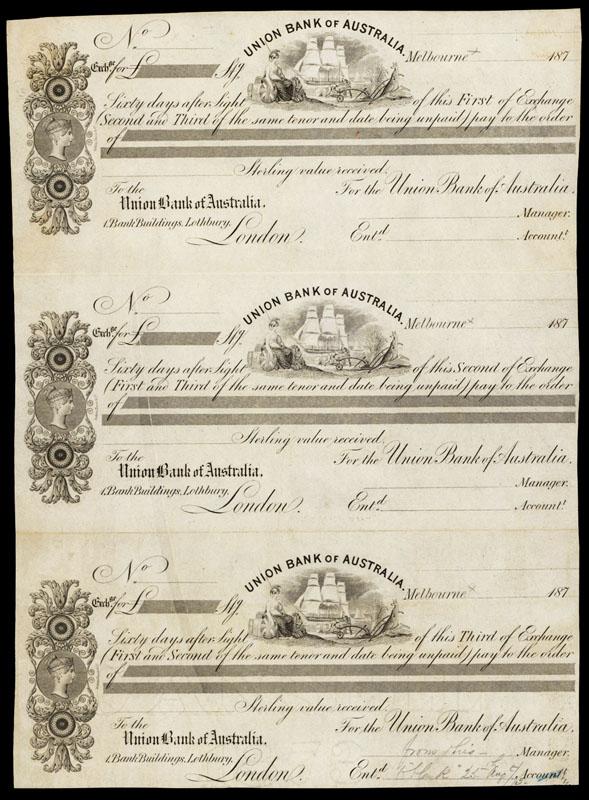 No
UNION BANK OF AUSTRALIA.
Melbourne 187
Exchge for £ Stg.
Sixty days after Sight of this First of Exchange
(Second and Third of the same tenor and date being unpaid) pay to the order
of
Sterling value received.
To the For the Union Bank of Australia.
Union Bank of Australia.
1, Bank Buildings, Lothbury. Manager.
London. Entd. Accountt.
No
UNION BANK OF AUSTRALIA.
Melbourne 187
Exchge for £ Stg.
Sixty days after Sight of this Second of Exchange
(First and Third of the same tenor and date being unpaid) pay to the order
of
Sterling value received.
To the For the Union Bank of Australia.
Union Bank of Australia.
1, Bank Buildings, Lothbury. Manager.
London. Entd. Accountt.
No
UNION BANK OF AUSTRALIA.
Melbourne 187
Exchge for £ Stg.
Sixty days after Sight of this Third of Exchange
(First and Second of the same tenor and date being unpaid) pay to the order
of
Sterling value received.
To the For the Union Bank of Australia.
Union Bank of Australia.
from this
1, Bank Buildings, Lothbury. Manager.
London. Entd. 25 Aug Accountt.